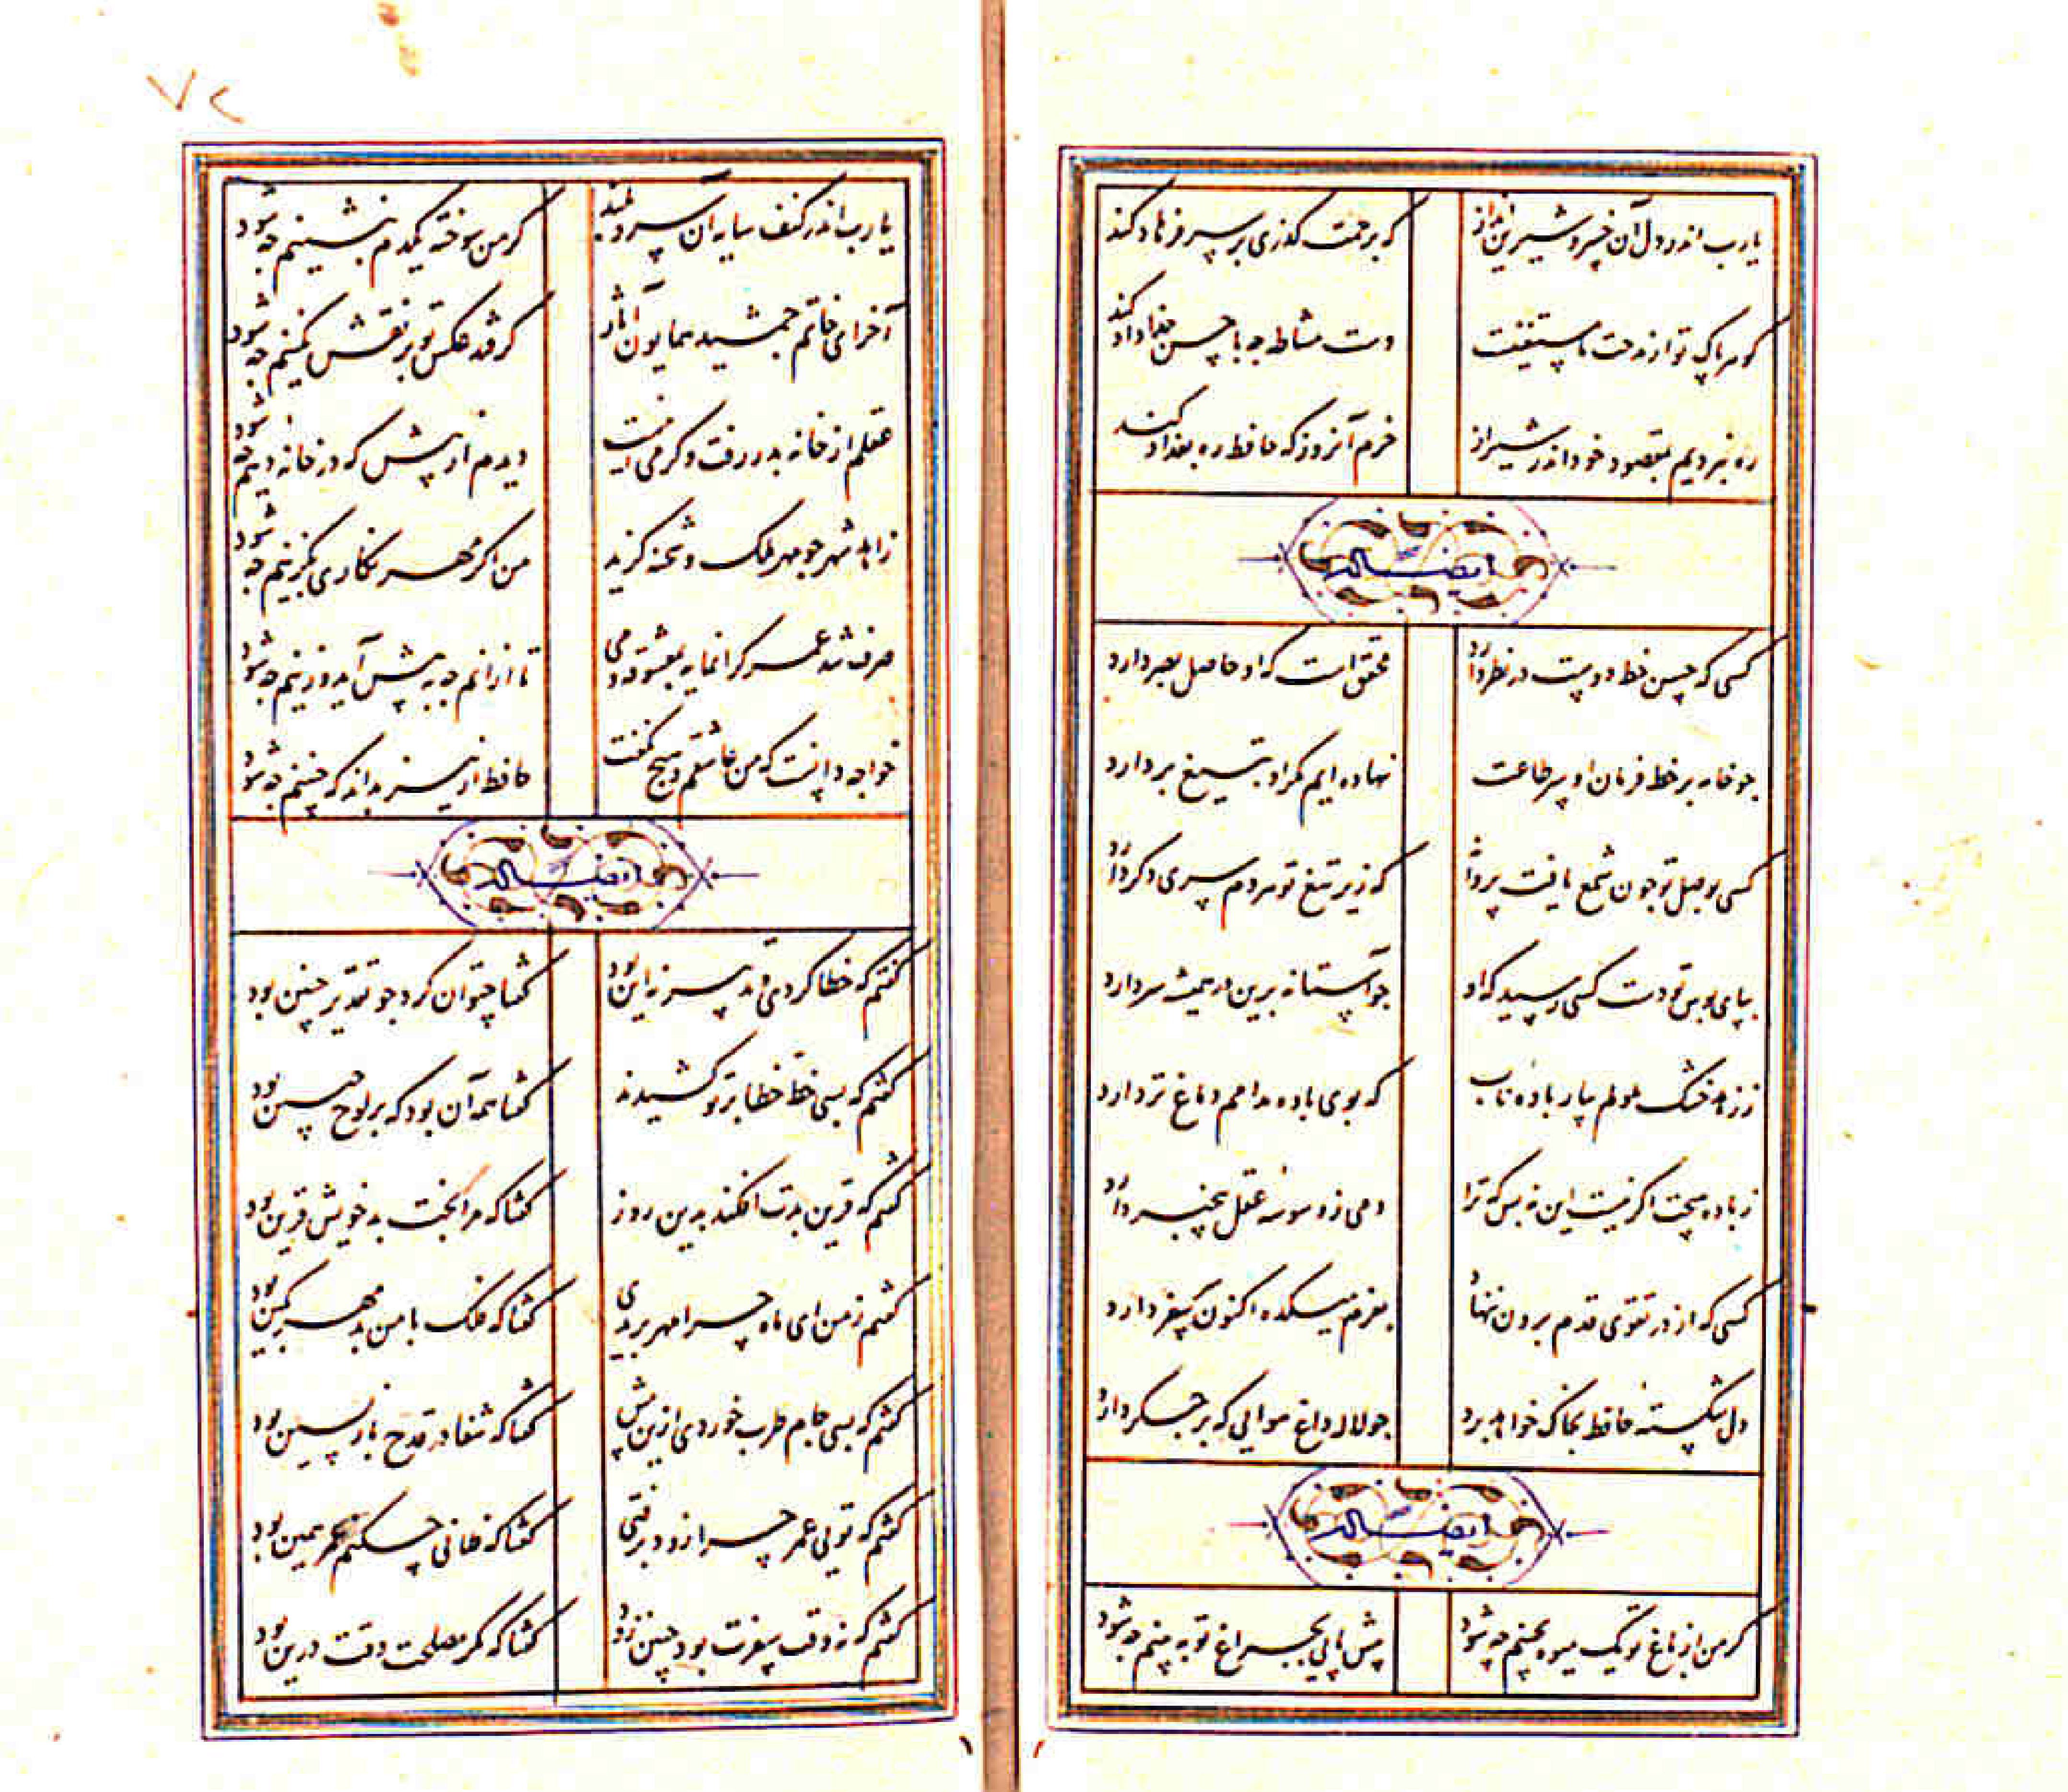 یارب اندر دل آن خسرو شیرین انداز
که برحمت گذری بر سر فرهاد کند
گوهر پاک تو از مدحت ما مستغنیست
دست مشاطه چه با حسن خداداد کند
ره نبردیم بمقصود خود اندر شیراز
خرم آنروز که حافظ ره بغداد کند
ایضاله
کسی که حسن خط دوست در نظر دارد
محقق است که او حاصل بصر دارد
چو خامه بر خط فرمان او سر طاعت
نهاده‌ایم مگر او بتیغ بردارد
کسی بوصل تو چون شمع یافت پروانه
که زیر تیغ تو هر دم سری دگر دارد
بپای بوس تو دست کسی رسید که او
چو آستانه برین در همیشه سر دارد
ز زهد خشک ملولم بیار باده ناب
که بوی باده مدامم دماغ تر دارد
ز باده هیچت اگر نیست این نه بس که ترا
دمی ز وسوسه عقل بیخبر دارد
کسی که از در تقوی قدم برون ننهاد
بعزم میکده اکنون سفر دارد
دل شکسته حافظ بخاک خواهد برد
چو لاله داغ هوایی که بر جگر دارد
ایضاله
گر من از باغ تو یک میوه بچینم چه شود
پیش پایی بچراغ تو ببینم چه شود
۷۲
یارب اندر کنف سایه آن سرو بلند
گر من سوخته یکدم بنشینم چه شود
آخر ای خاتم جمشید همایون آثار
گر فتد عکس تو بر نقش نگینم چه شود
عقلم از خانه بدر رفت و گر می اینست
دیدم از پیش که در خانه دینم چه شود
زاهد شهر چو مهر ملک و شحنه گزید
من اگر مهر نگاری بگزینم چه شود
صرف شد عمر گرانمایه بمعشوقه و می
تا از آنم چه به پیش آید و زینم چه شود
خواجه دانست که من عاشقم و هیچ نگفت
حافظ ار نیز بداند که چنینم چه شود
ایضاله
گفتم که خطا کردی و تدبیر نه این بود
گفتا چتوان کرد چو تقدیر چنین بود
گفتم که بسی خط خطا بر تو کشیدند
گفتا همه آن بود که بر لوح جبین بود
گفتم که قرین بدت افکند بدین روز
گفتا که مرا بخت بد خویش قرین بود
گفتم ز من ای ماه چرا مهر بریدی
گفتا که فلک با من بد مهر بکین بود
گفتم که بسی جام طرب خوردی ازین پیش
گفتا که شفا در قدح بازپسین بود
گفتم که تویی عمر چرا زود برفتی
گفتا که فلانی چکنم عمر همین بود
گفتم که نه وقت سفرت بود چنین زود
گفتا که مگر مصلحت وقت درین بود